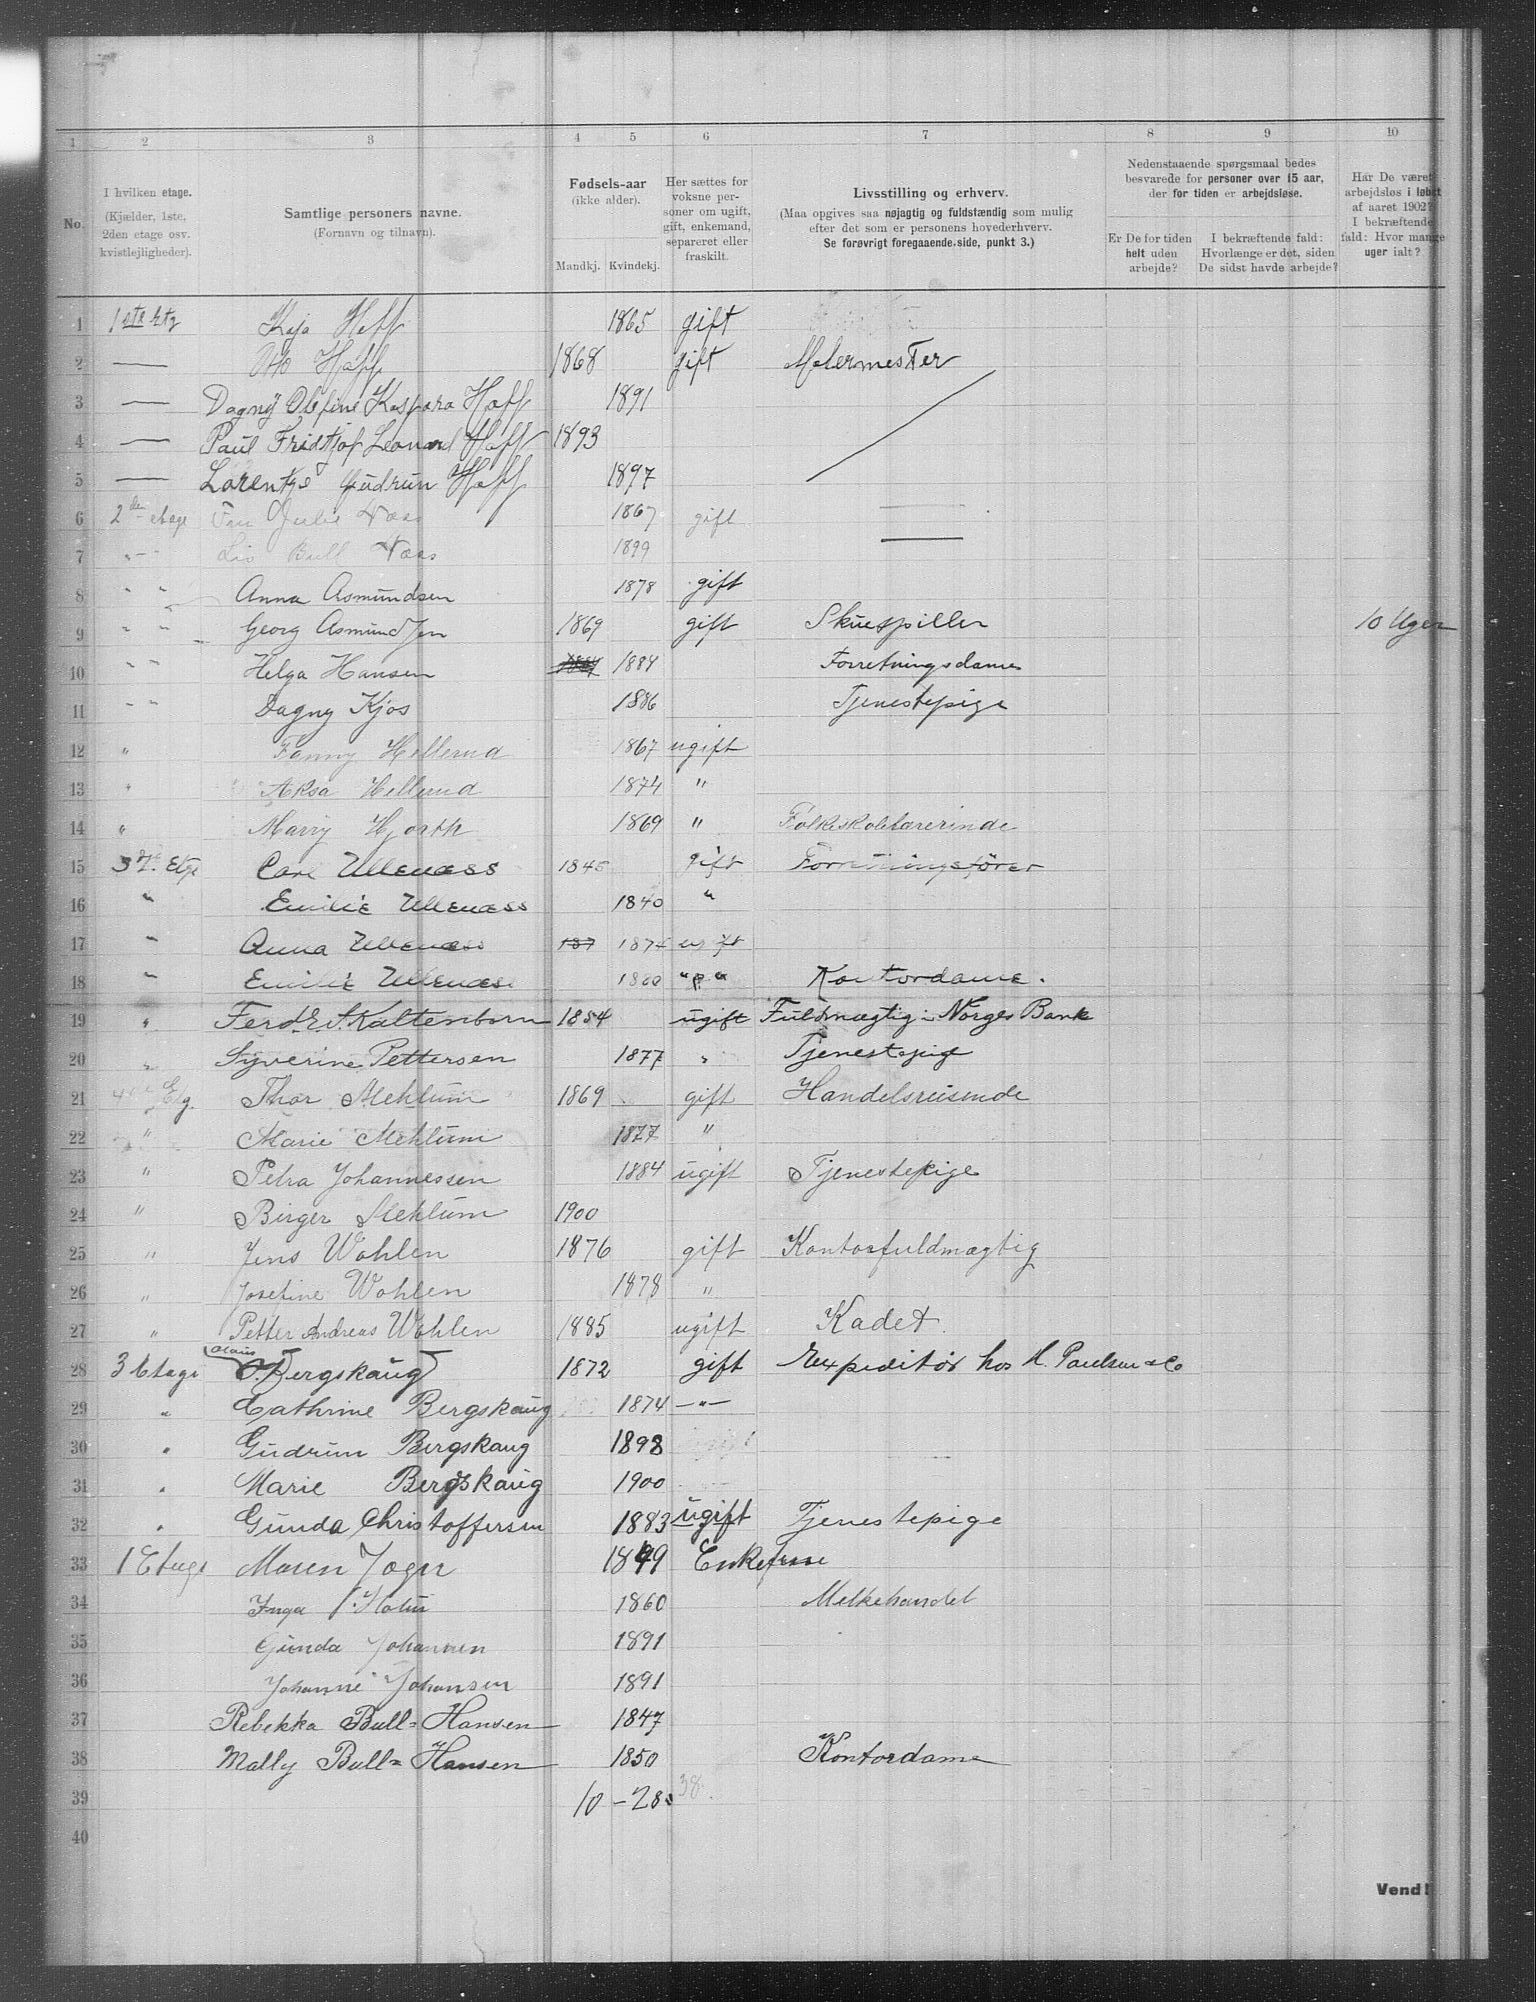 1 2 3 4 5 6 7 8 9 10
No.
I hvilken etage.
(Kjælder, 1ste,
2den etage osv.
kvistlejligheder).
Samtlige personers navne.
(Fornavn og tilnavn).
Fødsels-aar
(ikke alder).
Mandkj. Kvindekj.
Her sættes for
voksne per-
soner om ugift,
gift, enkemand,
separeret eller
fraskilt.
Livsstilling og erhverv.
(Maa opgives saa nøjagtig og fuldstændig som mulig
efter det som er personens hovederhverv.
Se forøvrigt foregaaende side, punkt 3.)
Nedenstaaende spørgsmaal bedes
besvarede for personer over 15 aar,
der for tiden er arbejdsløse.
Er De for tiden
helt uden
arbejde?
I bekræftende fald:
Hvorlænge er det, siden
De sidst havde arbejde?
Har De været
arbejdsløs i løbet
af aaret 1902?
I bekræftende
fald: Hvor mange
uger ialt?
1 1ste Etg Kaja Hoff 1865 gift
2 — Otto Hoff 1868 gift Malermester
3 — Dagny Olefine Kaspara Hoff 1891
4 — Paul Fridtjof Leonard Hoff 1893
5 — Lorentze Gudrun Hoff 1897
6 2den etage Fru Julie Næss 1867 gift —
7 - - Liv Bull Næss 1899 —
8 " " Anna Asmundsen 1878 gift
9 " " Georg Asmundsen 1869 gift Skuespiller 10 Uger
10 " " Helga Hansen 1884 Forretningsdame
11 " " Dagny Kjos 1886 Tjenestepige
12 " Fanny Hellerud 1867 ugift
13 " Aksa Hellerud 1874 "
14 " Marry Hjorth 1869 " Folkeskolelærerinde
15 3die Etg Carl Ullenæss 1845 gift Forretningsfører
16 " Emilie Ullenæss 1840 "
17 " Anna Ullenæss 187 1875 ugift
18 " Emilie Ullenæss 1880 " " Kontordame.
19 " Ferd. E. S. Kaltenborn 1854 ugift Fuldmægtig i Norges Bank
20 " Syverine Pettersen 1877 " Tjenestepige
21 4de Etg. Thor Mehlum 1869 gift Handelsreisende
22 " Marie Mehlum 1877 "
23 " Petra Johannessen 1884 ugift Tjenestepige
24 " Birger Mehlum 1900
25 " Jens Wohlen 1876 gift Kontorfuldmægtig
26 " Josefine Wohlen 1878 "
27 " Petter Andreas Wohlen 1885 ugift Kadet.
28 3 Etage Olaus O. Bergskaug 1872 gift Expeditør hos H. Paulsen & Co
29 " Cathrine Bergskaug 1874 — " —
30 " Gudrun Bergskaug 1898
31 " Marie Bergskaug 1900
32 " Gunda Christoffersen 1883 ugift Tjenestepige
33 1 Etage Maren 1849 Enkefrue
34 Inga Holm 1860 Melkehandel
35 Gunda Johansen 1891
36 Johanne Johansen 1891
37 Rebekka Bull-Hansen 1847
38 Mally Bull-Hansen 1850 Kontordame
39 10 - 28 38.
40
Vend!